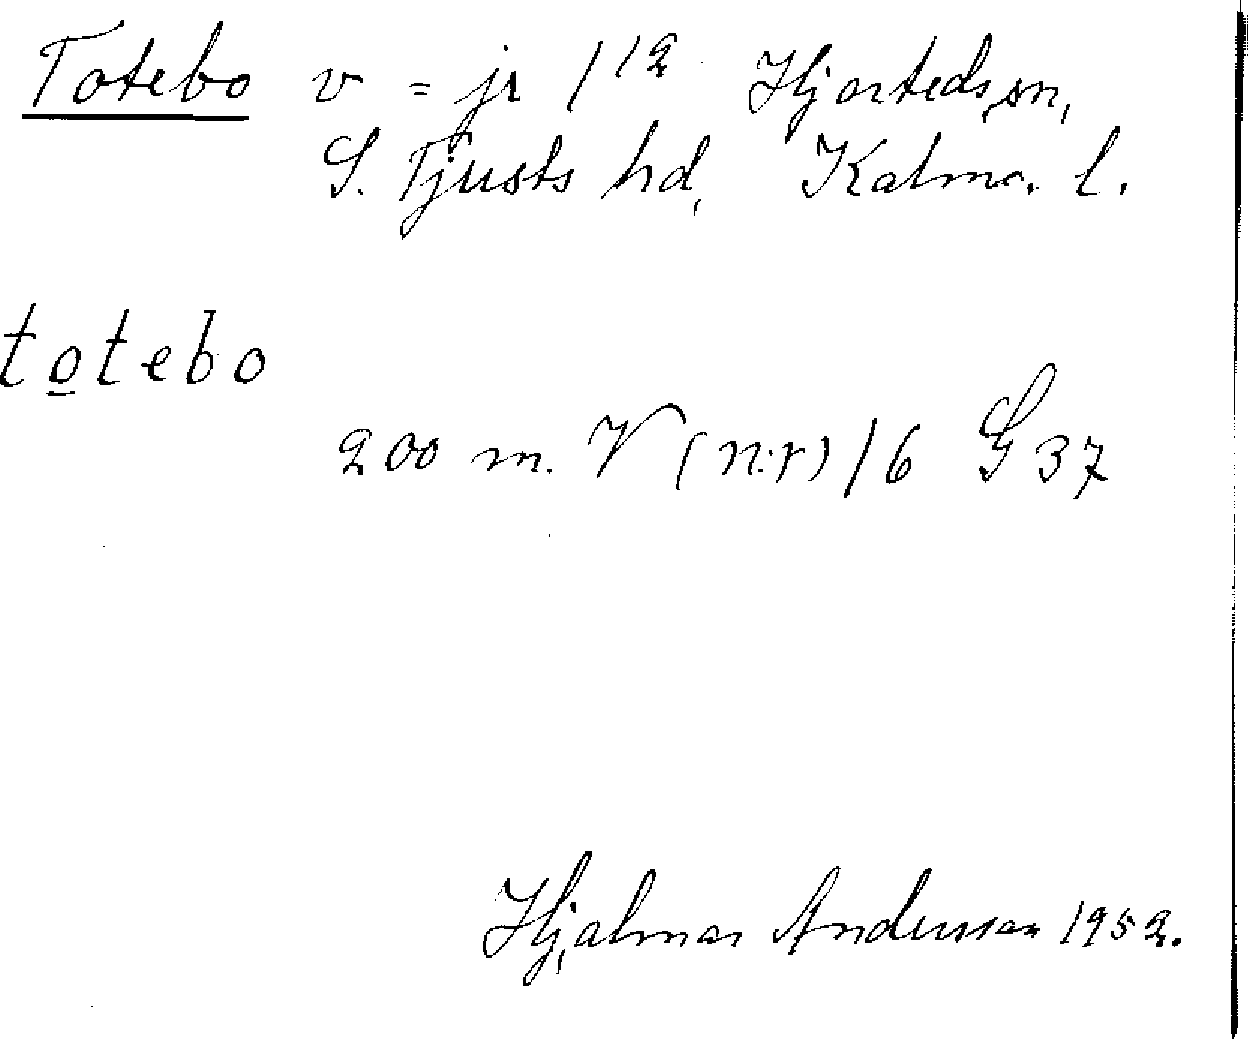 Totebo v = jr 1¹² Hjorteds sn,
S. Tjusts hd, Kalmar l.
totebo
200 m. V (n:r) 16 G 37
Hjalmar Andersson 1952.